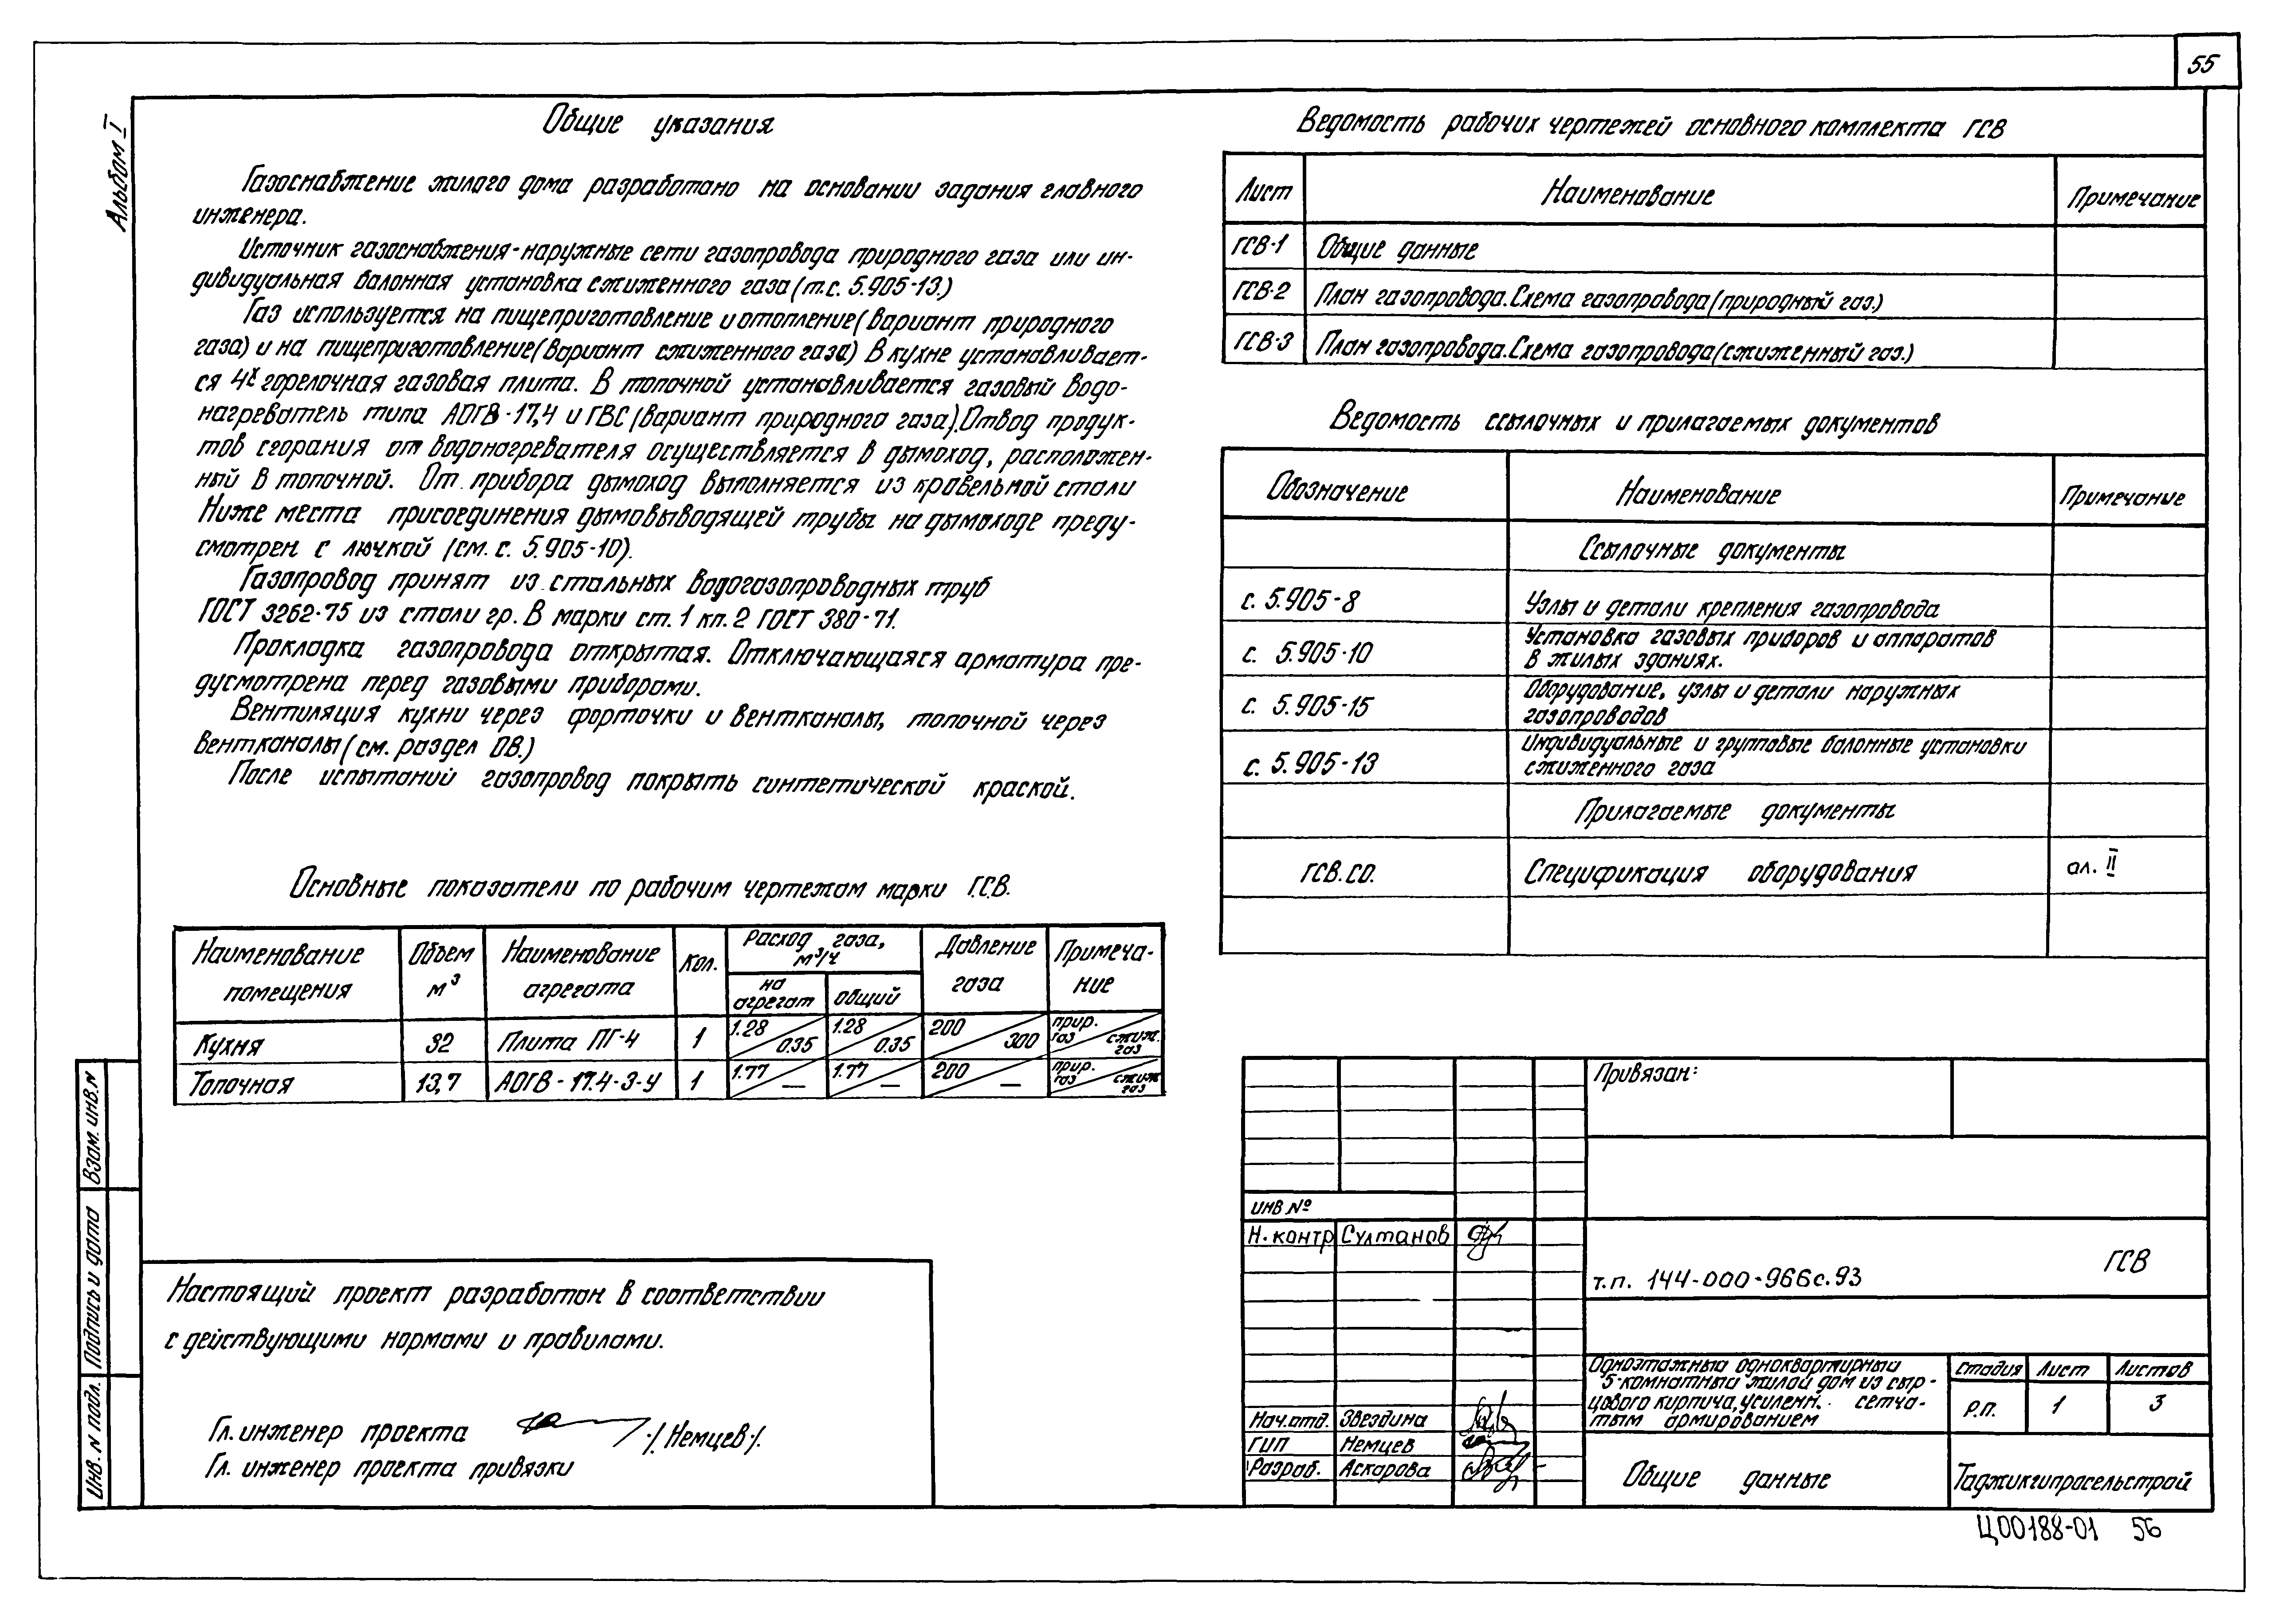 55
Альбом I
Общие указания
Газоснабжение жилого дома разработано на основании задания главного
инженера.
Источник газоснабжения-наружные сети газопровода природного газа или ин-
дивидуальная балонная установка сжиженного газа (т.с. 5.905-13.)
Газ используется на пищеприготовление и отопление (вариант природного
газа) и на пищеприготовление (вариант сжиженного газа) В кухне устанавливает-
ся 4х горелочная газовая плита. В топочной устанавливается газовый водо-
нагреватель типа АОГВ-17,4 и ГВС (вариант природного газа). Отвод продук-
тов сгорания от водонагревателя осуществляется в дымоход, расположен-
ный в топочной. От прибора дымоход выполняется из кровельной стали
Ниже места присоединения дымовыводящей трубы на дымоходе преду-
смотрен с лючкой (см. с. 5.905-10).
Газопровод принят из стальных водогазопроводных труб
ГОСТ 3262-75 из стали гр. В марки ст. 1 кп. 2 ГОСТ 380-71.
Прокладка газопровода открытая. Отключающаяся арматура пре-
дусмотрена перед газовыми приборами.
Вентиляция кухни через форточки и вентканалы, топочной через
вентканалы (см. раздел ОВ.)
После испытаний газопровод покрыть синтетической краской.
Основные показатели по рабочим чертежам марки Г.С.В.
Наименование помещения | Объем м³ | Наименование агрегата | Кол. | Расход газа, м³/ч | Давление газа | Примеча-ние
на агрегат | общий
Кухня | 32 | Плита ПГ-4 | 1 | 1.28 / 0.35 | 1.28 / 0.35 | 200 / 300 | прир. газ / сжиж. газ
Топочная | 13,7 | АОГВ-17.4-3-У | 1 | 1.77 / — | 1.77 / — | 200 / — | прир. газ / сжиж газ
Настоящий проект разработан в соответствии
с действующими нормами и правилами.
Гл. инженер проекта /Немцев/.
Гл. инженер проекта привязки
Взам. инв. N
Подпись и дата
Инв. N подл.
Ведомость рабочих чертежей основного комплекта ГСВ
Лист | Наименование | Примечание
ГСВ-1 | Общие данные
ГСВ-2 | План газопровода. Схема газопровода (природный газ.)
ГСВ-3 | План газопровода. Схема газопровода (сжиженный газ.)
Ведомость ссылочных и прилагаемых документов
Обозначение | Наименование | Примечание
Ссылочные документы
с. 5.905-8 | Узлы и детали крепления газопровода
с. 5.905-10 | Установка газовых приборов и аппаратов
в жилых зданиях.
с. 5.905-15 | Оборудование, узлы и детали наружных
газопроводов
с. 5.905-13 | Индивидуальные и групповые балонные установки
сжиженного газа
Прилагаемые документы
ГСВ.СО. | Спецификация оборудования | ал. II
Привязан:
ИНВ №
Н. контр | Султанов
т.п. 144-000-966с.93 ГСВ
Нач. отд. | Звездина
ГИП | Немцев
Разраб. | Аскарова
Одноэтажный одноквартирный
5-комнатный жилой дом из сыр-
цового кирпича, усиленн. сетча-
тым армированием
Стадия | Лист | Листов
Р.П. | 1 | 3
Общие данные
Таджикгипросельстрой
Ц00188-01 56